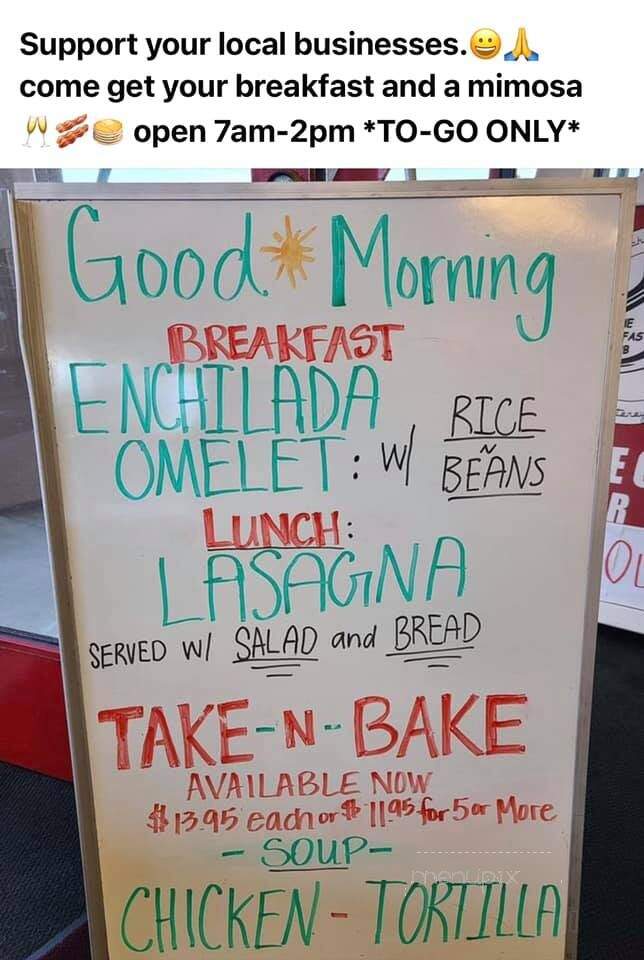 Support your local businesses.😀🙏
come get your breakfast and a mimosa
🥂🥓🥞 open 7am-2pm *TO-GO ONLY*
Good Morning
BREAKFAST
ENCHILADA
OMELET: W/ RICE
BEANS
LUNCH:
LASAGNA
SERVED W/ SALAD and BREAD
TAKE-N-BAKE
AVAILABLE NOW
$13.95 each or $11.95 for 5 or More
- SOUP -
menupix
CHICKEN - TORTILLA